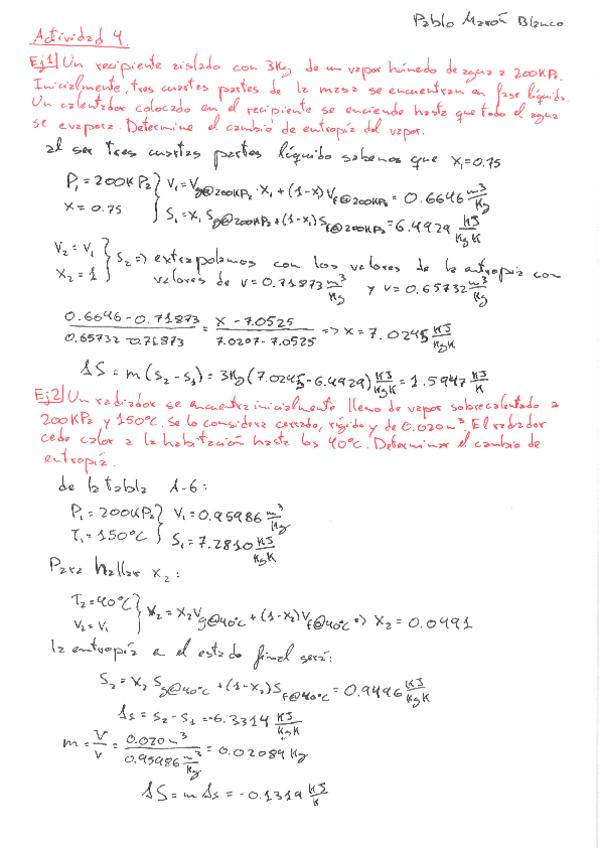 Pablo Marón Blanco
Actividad 4.
Ej1) Un recipiente aislado con 3Kg de un vapor húmedo de agua a 200KPa.
Inicialmente, tres cuartas partes de la masa se encuentran en fase líquida.
Un calentador colocado en el recipiente se enciende hasta que todo el agua
se evapora. Determine el cambio de entropía del vapor.
al ser tres cuartas partes líquido sabemos que x₁=0.75
P₁=200KPa } V₁=Vg@200KPa·X₁+(1-X)Vf@200KPa=0.6646 m³/Kg
X=0.75 } S₁=X₁Sg@200KPa+(1-x₁)Sf@200KPa=6.4929 KJ/KgK
V₂=V₁ } S₂=> extrapolamos con los valores de la entropía con
X₂=1 } valores de v=0.71873 m³/Kg y v=0.65732 m³/Kg
(0.6646-0.71873)/(0.65732-0.71873)=(X-7.0525)/(7.0207-7.0525)=>x=7.0245 KJ/KgK
ΔS=m(S₂-S₁)=3Kg(7.0245-6.4929)KJ/KgK=1.5947 KJ/K
Ej2) Un radiador se encuentra inicialmente lleno de vapor sobrecalentado a
200KPa y 150°C. Se lo considera cerrado, rígido y de 0.020m³. El radiador
cede calor a la habitación hasta los 40°C. Determinar el cambio de
entropía.
de la tabla A-6:
P₁=200KPa } V₁=0.95986 m³/Kg
T₁=150°C } S₁=7.2810 KJ/KgK
Para hallar x₂:
T₂=40°C } V₂=X₂Vg@40°C+(1-X₂)Vf@40°C=>X₂=0.0491
V₂=V₁
la entropía en el estado final será:
S₂=X₂Sg@40°C+(1-X₂)Sf@40°C=0.9496 KJ/KgK
Δs=s₂-s₁=-6.3314 KJ/KgK
m=V/v=0.020m³/0.95986 m³/Kg=0.02084Kg
ΔS=mΔs=-0.1319 KJ/K